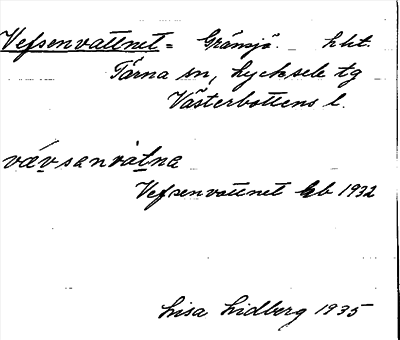 Vefsenvattnet = Gränsjö. hkt.
Tärna sn, Lycksele tg
Västerbottens l.
vǽvsanvàtna
Vefsenvattnet kb 1932
Lisa Lidberg 1935